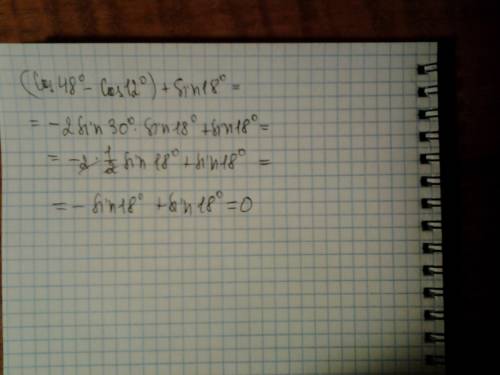 (Cos 48° - Cos 12°) + Sin 18° =
= -2 Sin 30° · Sin 18° + Sin 18° =
= -2 · 1/2 Sin 18° + Sin 18° =
= - Sin 18° + Sin 18° = 0